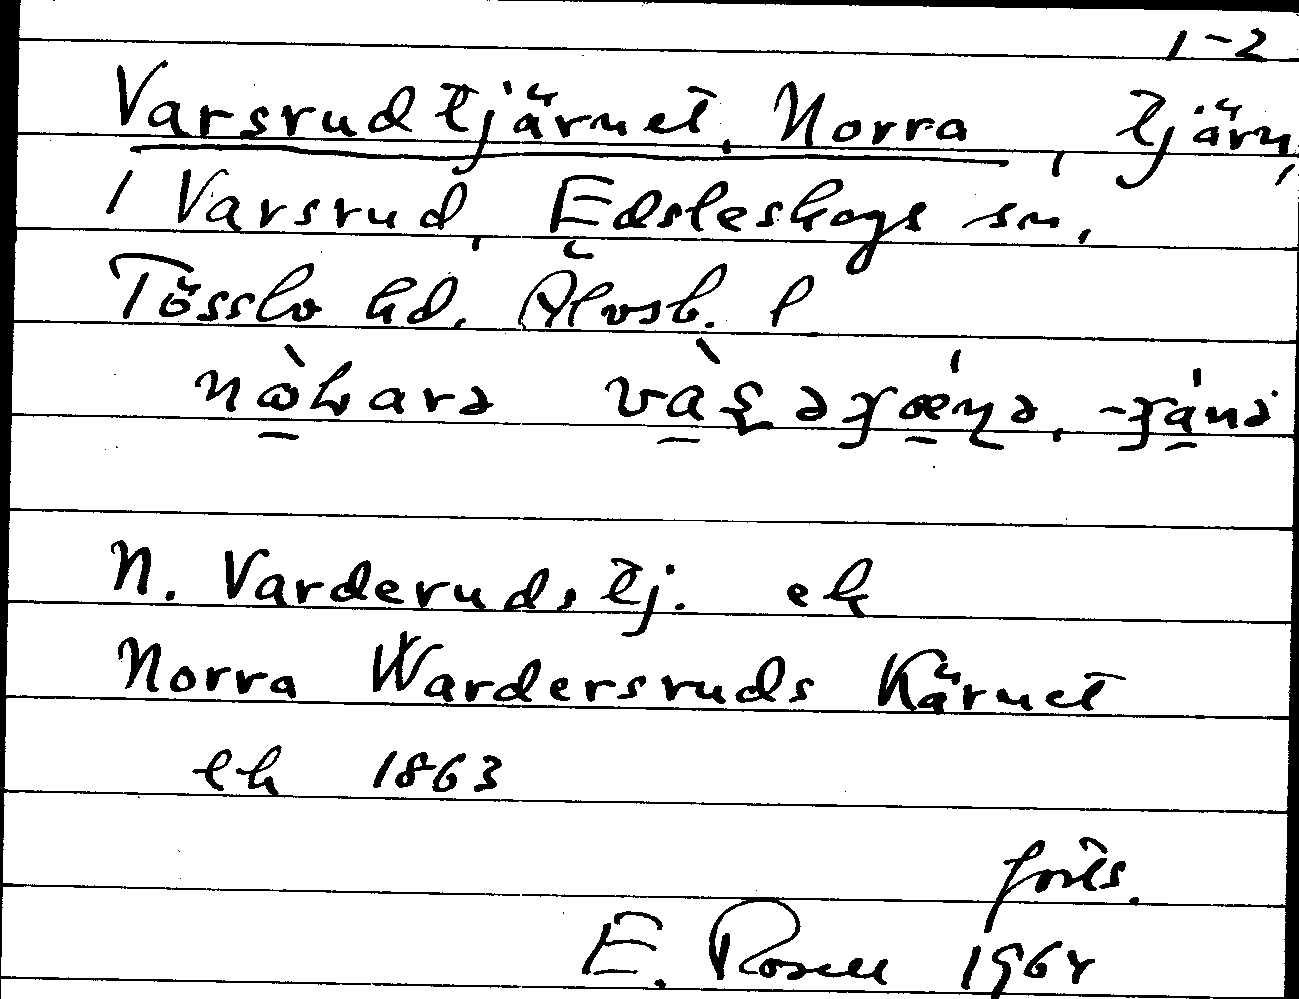 1-2
Varsrudtjärnet, Norra, tjärn,
1 Varsrud, Edsleskogs sn,
Tössbo hd, Älvsb. l
N. Varderuds tj. ek
Norra Wardersruds Kärnet
lk 1863
forts.
E. Rosell 1964